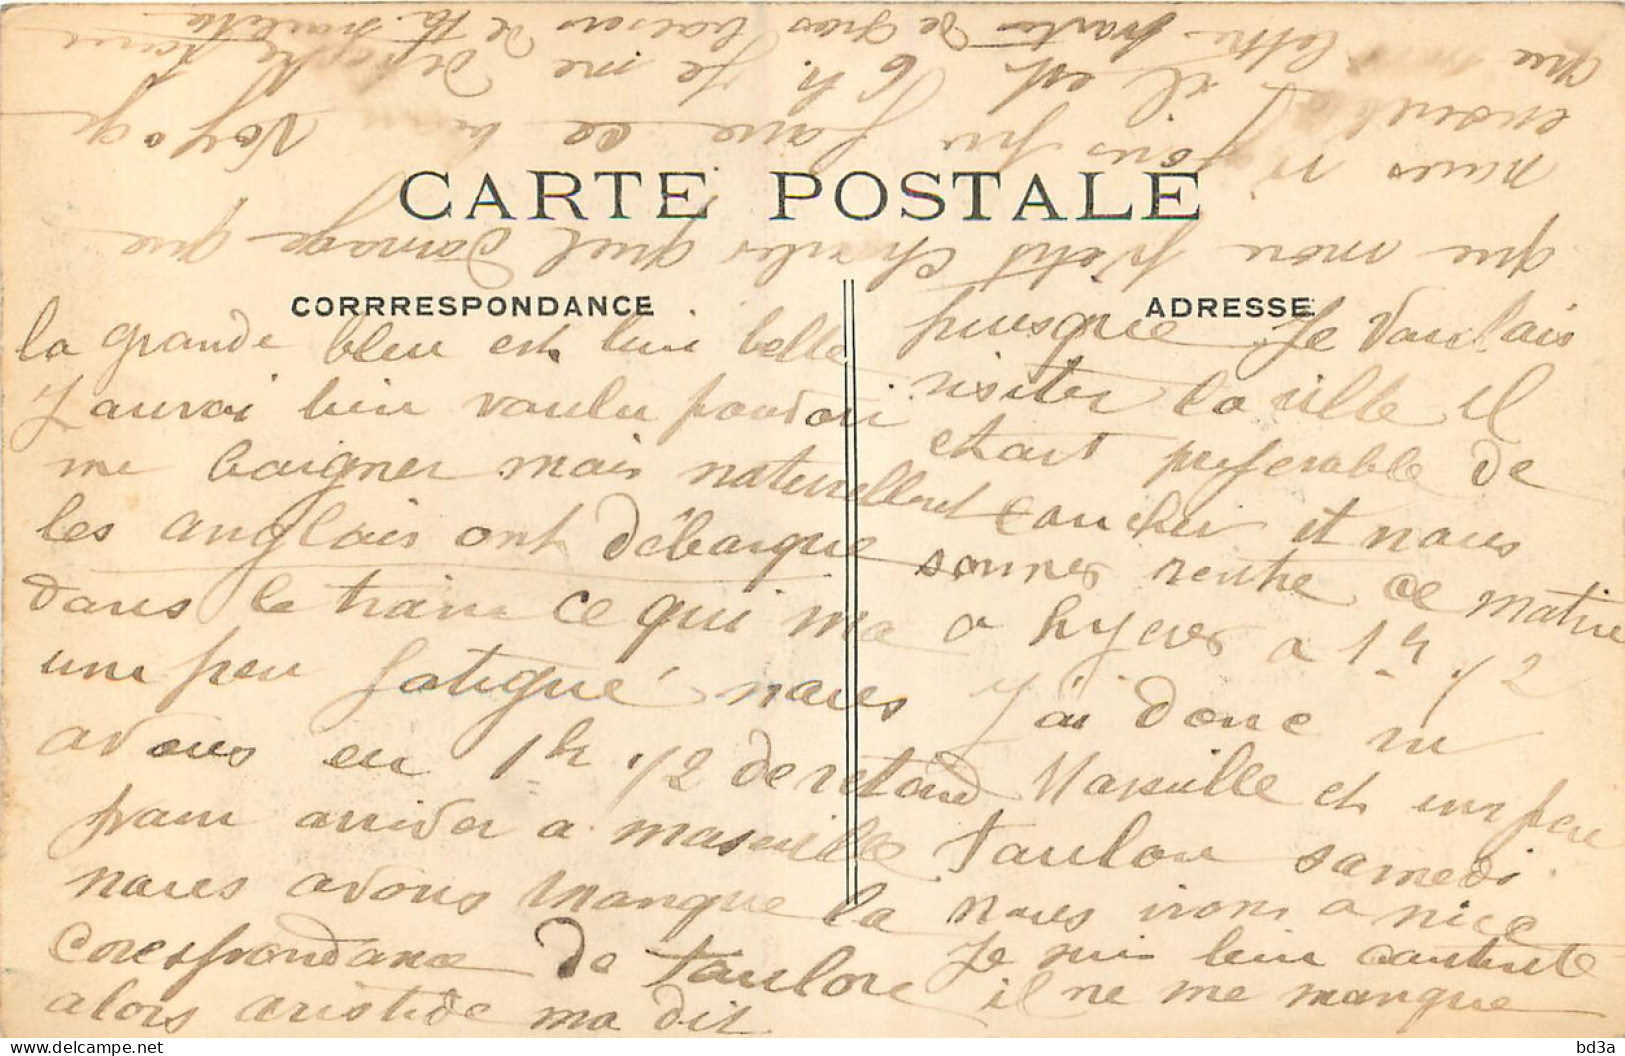 CARTE POSTALE
CORRRESPONDANCE
ADRESSE
la grande bleu est bien belle
J aurai bien voulu pouvoir
me baigner mais naturellement
les anglais ont débarqué
dans le train ce qui ma
une peu fatigué nous
avons eu 1h 1/2 de retard
pour arriver a marseille
nous avons manque la
correspondance de Toulon
alors aristide ma dit
puisque Je voulais
visiter la ville il
etait preferable de
coucher et nous
sommes rentre ce matin
a hyeres a 1h 1/2
J'ai donc vu
Marseille et un peu
Toulon samedi
nous irons a nice
Je suis bien contente
il ne me manque
que mon petit charles quel domage que
nous n'ayons pu faire ce beau voyage
ensemble il est 6 h. Je me depeche pour
que ma lettre parte de gros baisers de ta